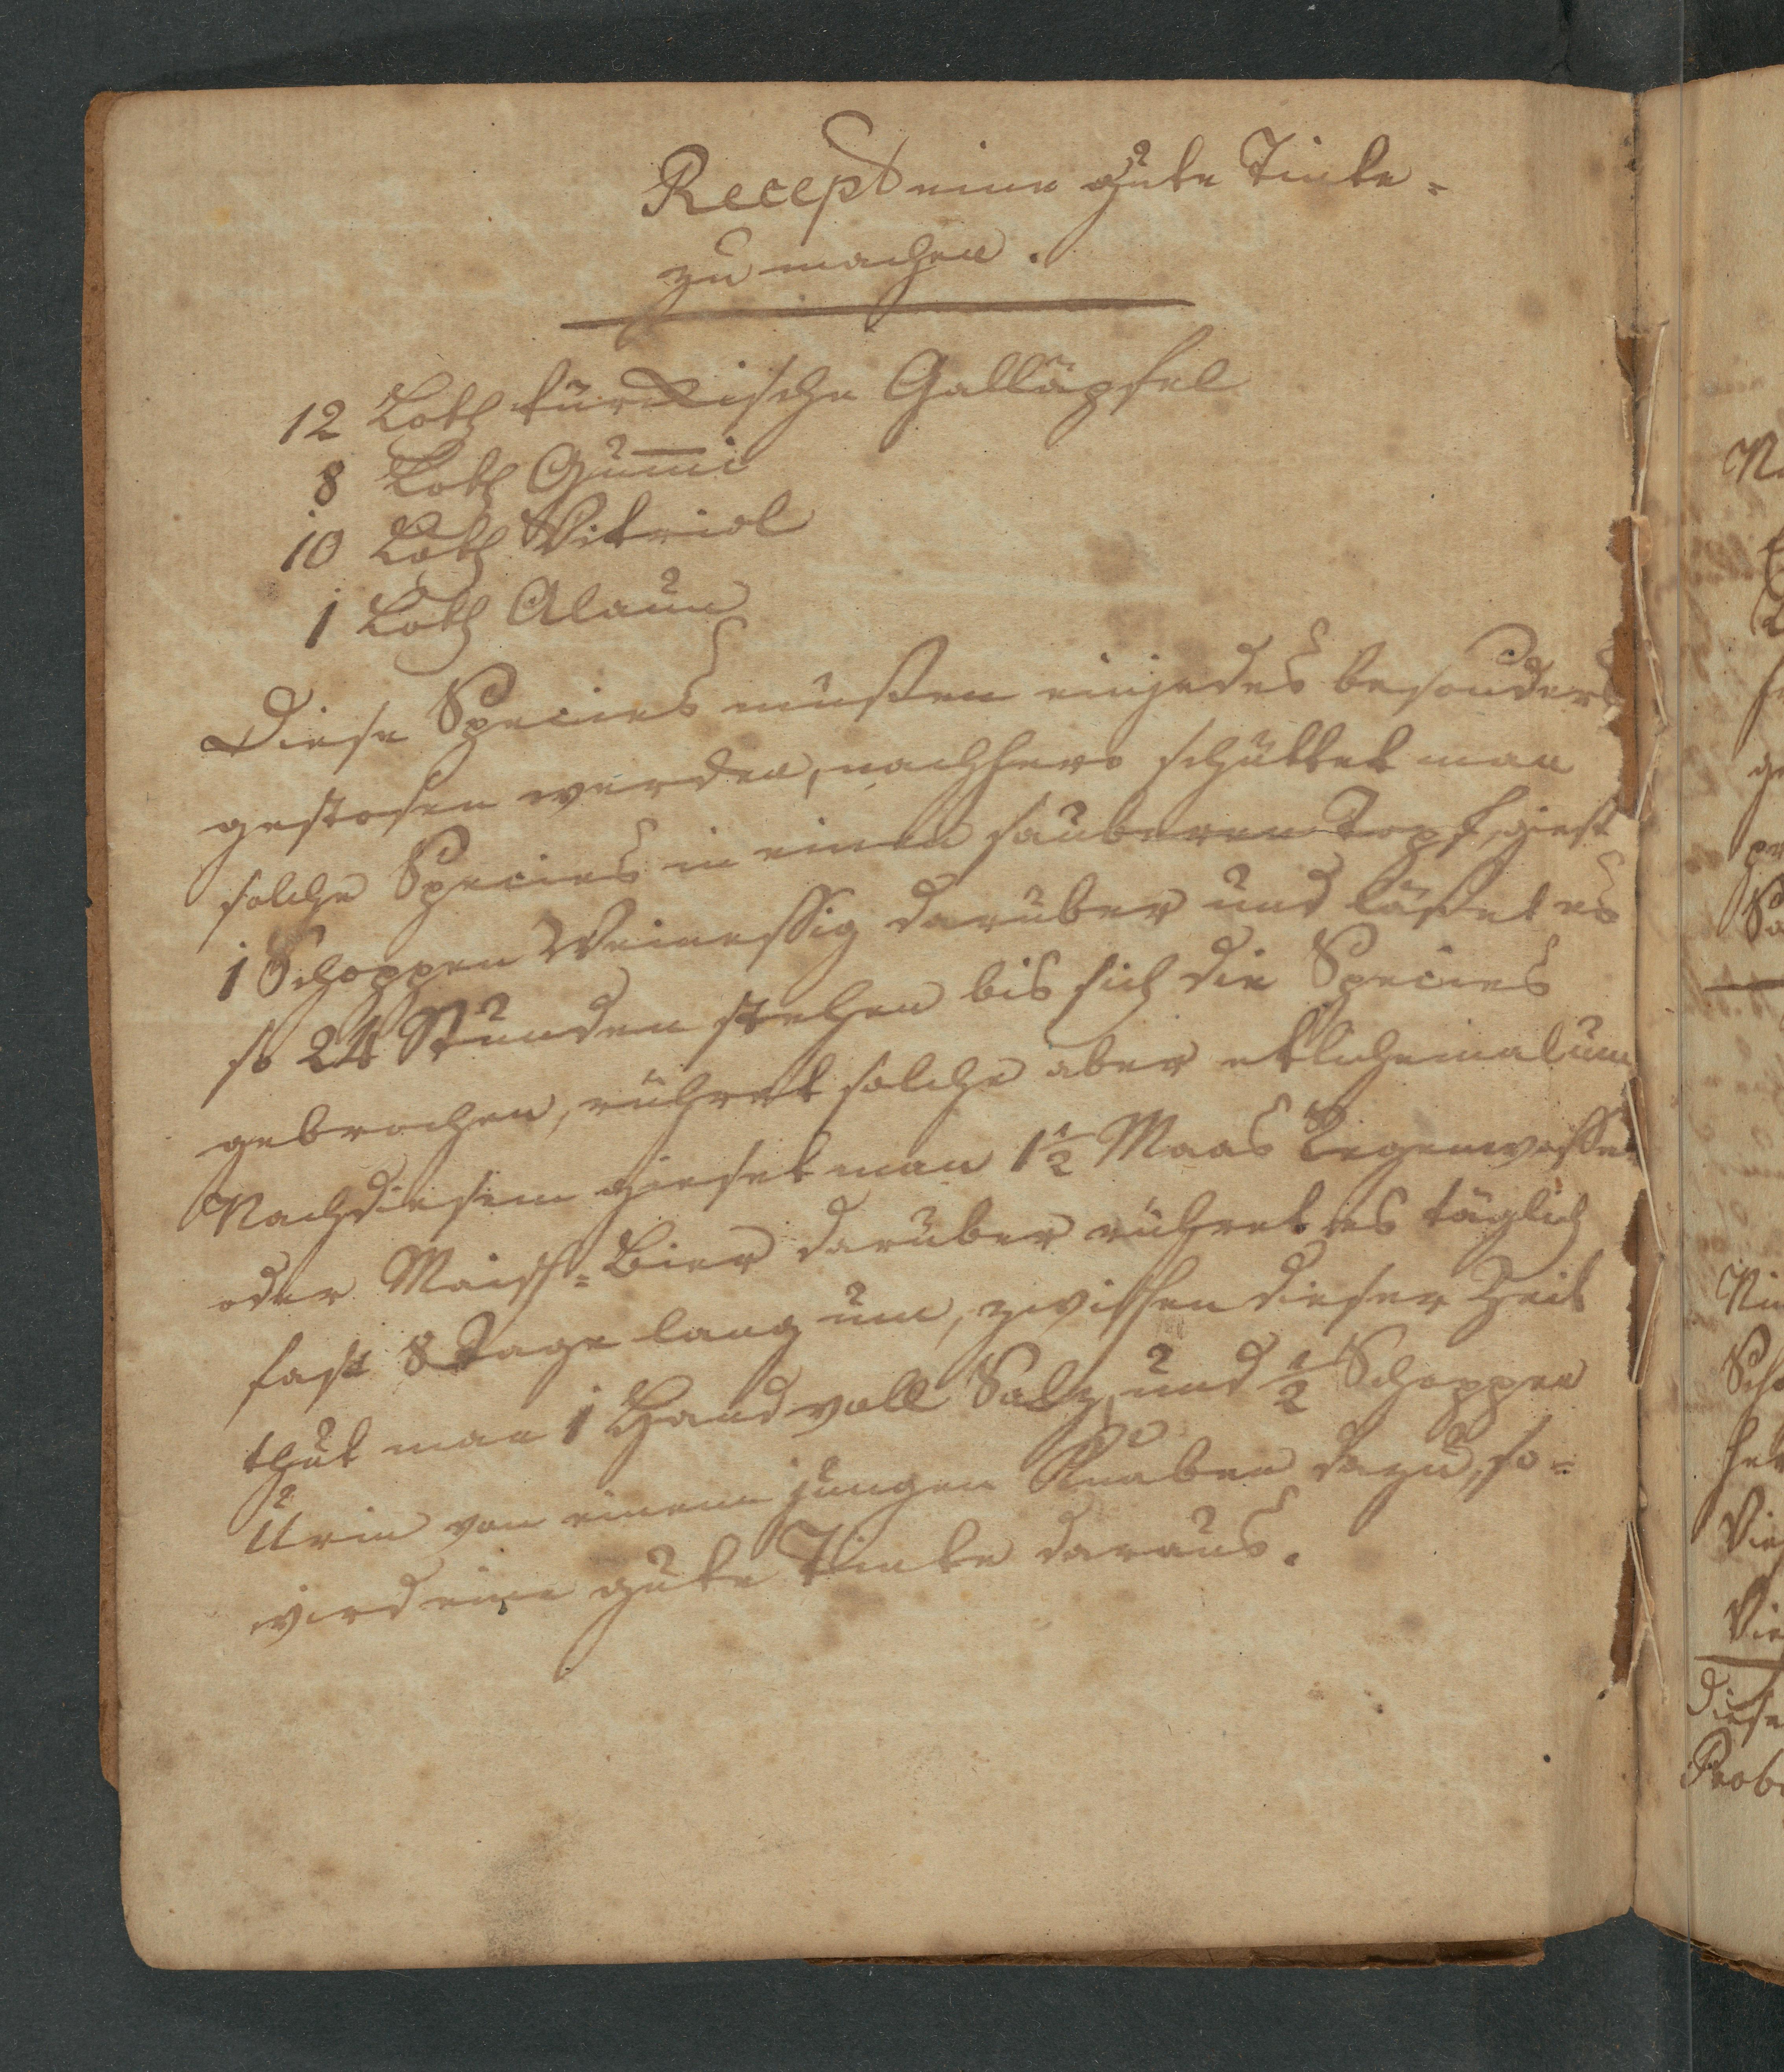 Recept eine gute Tinte-
zu machen.
12 Loth türkische Galläpfel
8 Loth Gum̄i
10 Loth Vitriol
1 Loth Alaun
Diese Species müßen einjedes besonders
gestosen werden, nachhero schüttet man
solche Species in einen sauberen Topf, giest
1 Schoppen Weinessig darüber und läßet es
so 24 Stunden stehen bis sich die Species
gebrochen, rühret solche aber etlichemal um
Nachdiesem gieset man 1 1/2 Maas Regenwasser
oder Maisch-Bier darüber rühret es täglich
fast 8 Tage lang um, zwischen dieser Zeit
thut man 1 Hand voll Salz, und 1/2 Schoppen
Urin von einem jungen Knaben dazu, so-
wird eine gute Tinte daraus.
Diese